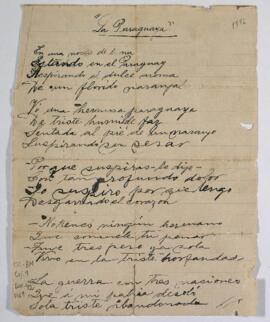 "La Paraguaya"
1896
En una noche de luna
Estando en el Paraguay
Respirando el dulce aroma
De un florido naranjal
Vi una hermosa paraguaya
De triste humilde faz
Sentada al pié de un naranjo
Suspirando sin pesar
-Por que suspiras le dije-
-Con tan profundo dolor
Yo suspiro por que tengo
Desgarrado el corazon
-No tienes ningún hermano
Que consuele tu
-Tuve tres pero ya sola
Vivo en la triste horfandad
La guerra con tres naciones
que a mi patria desoló
Sola triste abandonada